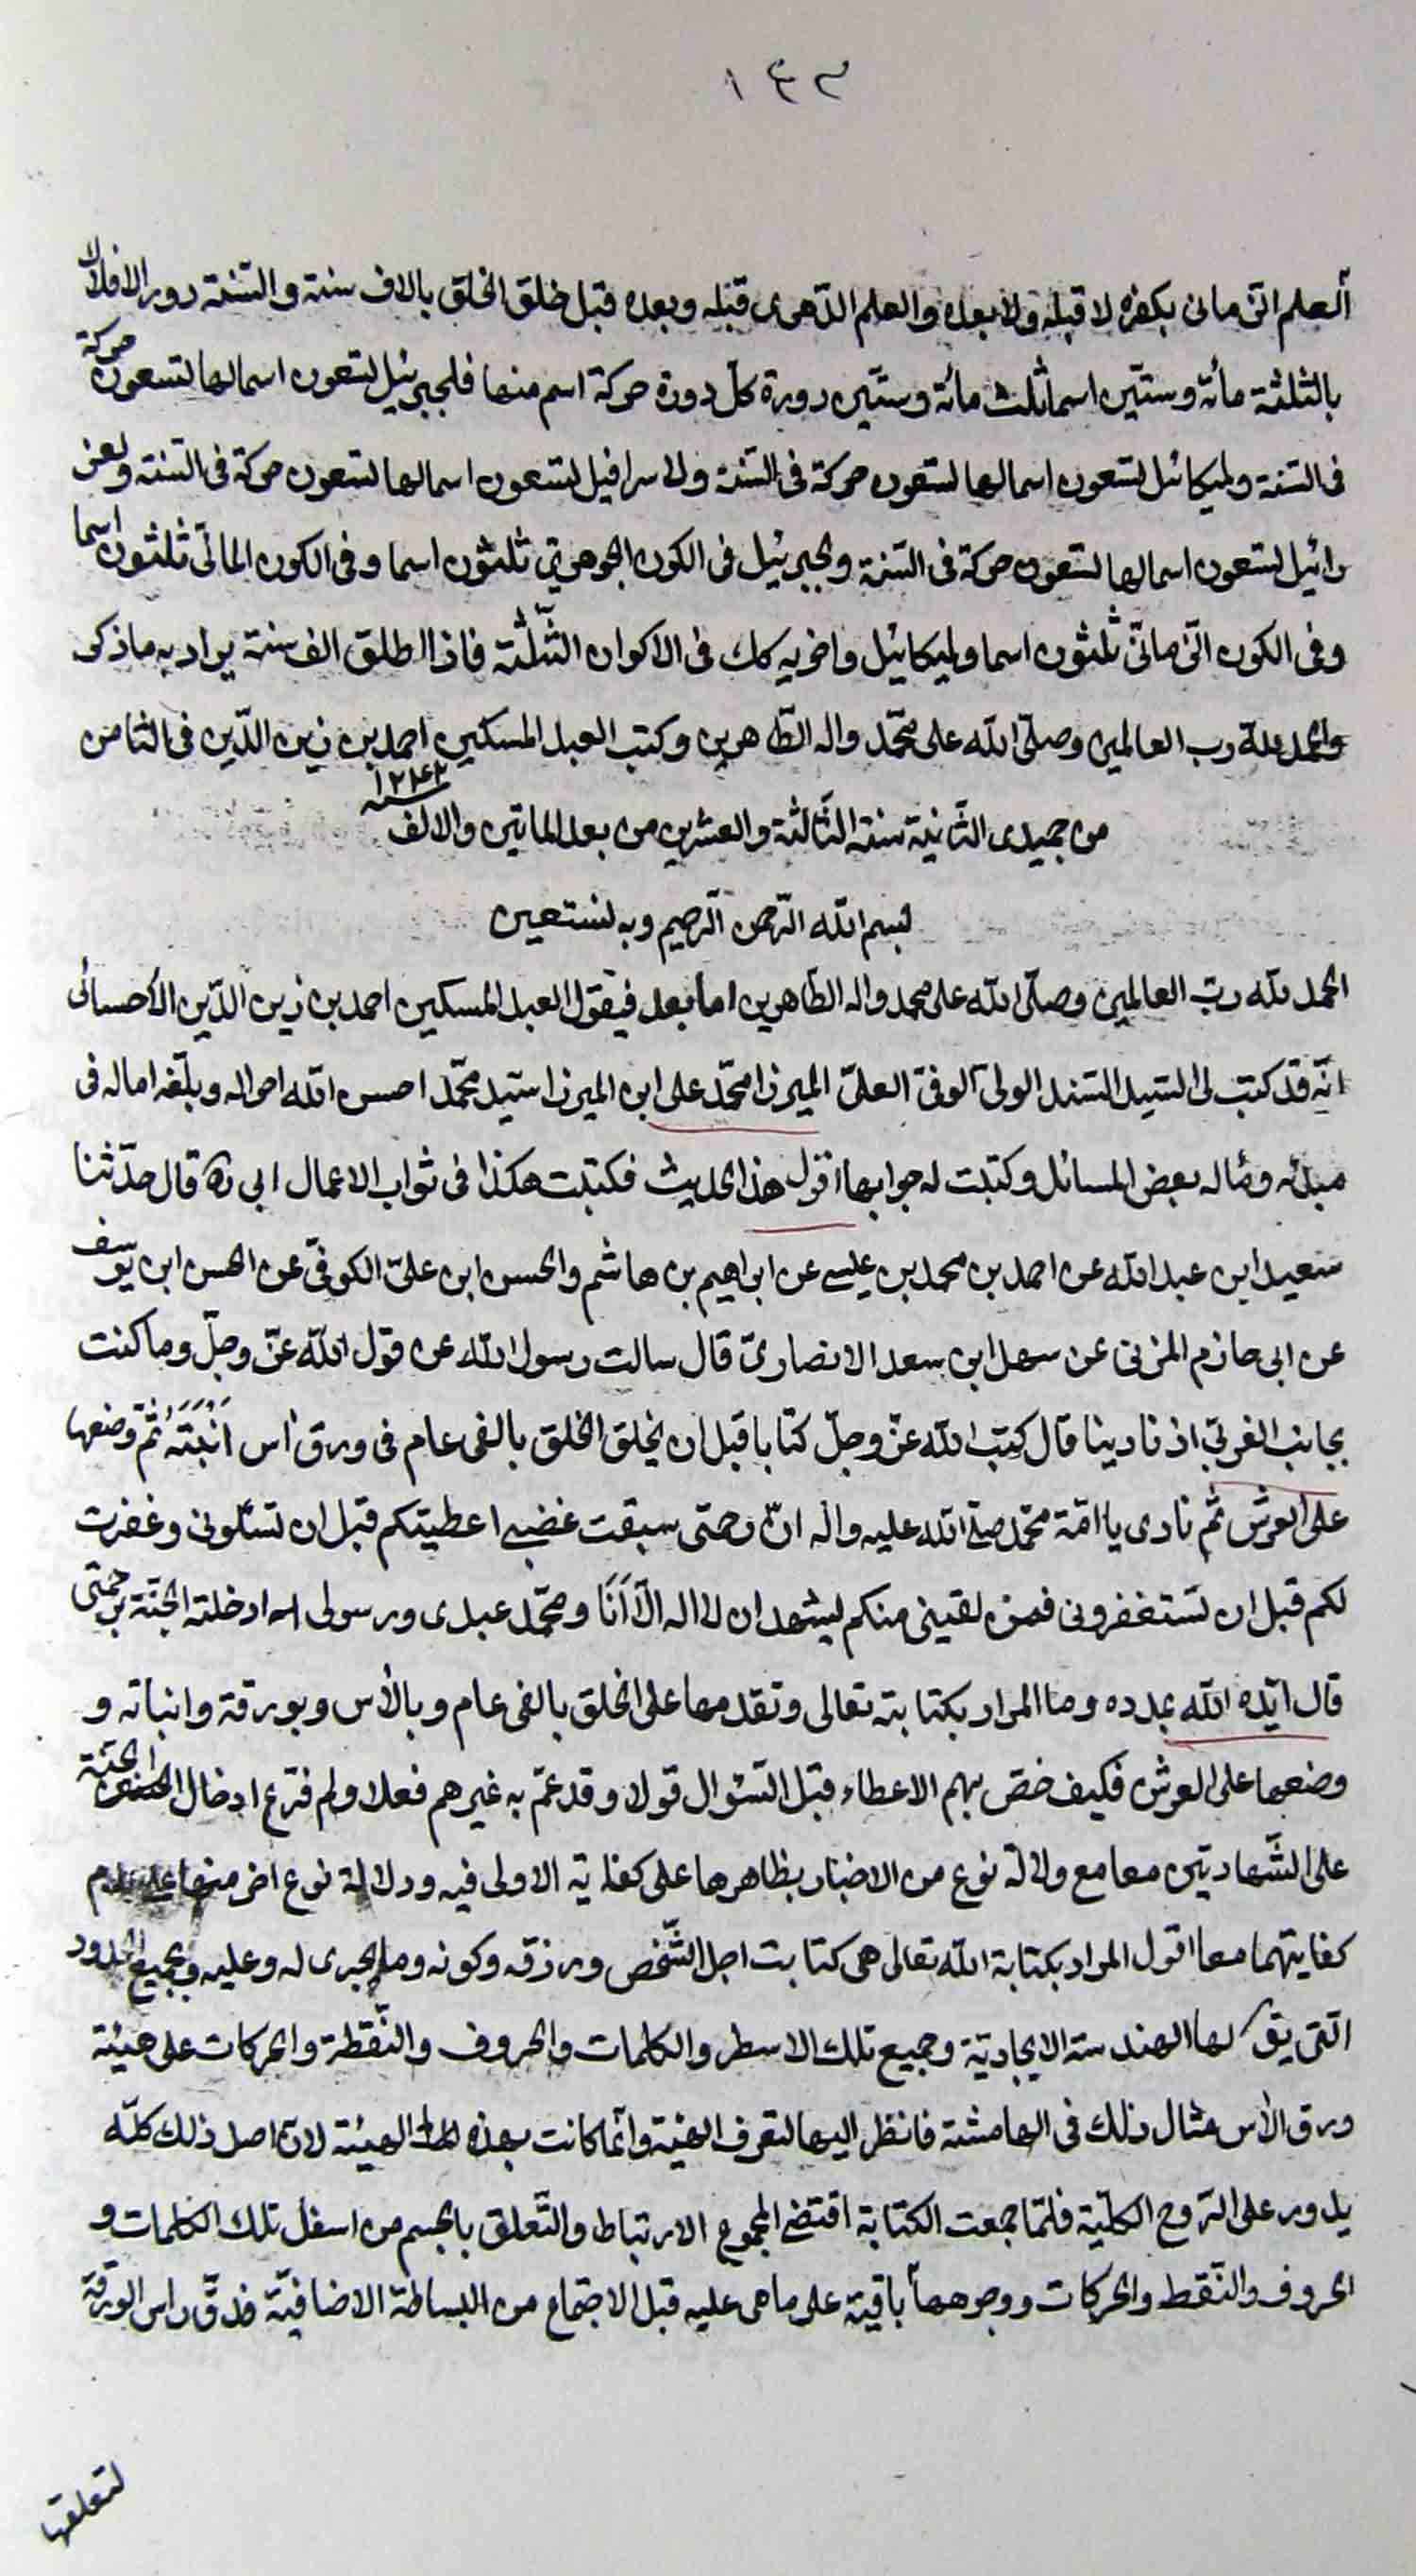 ١٤٣
العلم الزماني بكفره لا قبله ولا بعده والعلم الدهري قبله وبعده فقبل خلق الخلق بالاف سنة والسنة دور الافلاك
بالثلثة مأة وستين اسما ثلث مأة وستين دورة كل دورة حركة اسم منها فلجبرئيل تسعون اسما لها تسعون حركة
فى السنة ولميكائيل تسعون اسما لها تسعون حركة فى السنة ولاسرافيل تسعون اسما لها تسعون حركة فى السنة ولعز
رائيل تسعون اسما لها تسعون حركة فى السنة ولجبرئيل فى الكون الجوهري ثلثون اسما وفى الكون المائى ثلثون اسما
وفى الكون الزمانى ثلثون اسما ولميكائيل واخويه كك فى الاكوان الثلثة فاذا اطلق الف سنة يراد به ما ذكر
والحمد لله رب العالمين وصلى الله على محمد واله الطاهرين وكتب العبد المسكين احمد بن زين الدين فى الثامن
من جميدى الثانية سنة الثالثة والعشرين من بعد الماتين والالف
بسم الله الرحمن الرحيم وبه نستعين
الحمد لله رب العالمين وصلى الله على محمد واله الطاهرين اما بعد فيقول العبد المسكين احمد بن زين الدين الأحسائى
انه قد كتب لى السيد السند الولى الوفى العلى الميرزا محمد على ابن الميرزا سيد محمد احسن الله احواله وبلغه اماله فى
مبدئه ومأله بعض المسائل وكتبت له جوابها اقول هذا الحديث فكتبت هكذا فى ثواب الاعمال ابى ره قال حدثنا
سعيد ابن عبد الله عن احمد بن محمد بن عيسى عن ابراهيم بن هاشم والحسن ابن على الكوفى عن الحسن ابن يوسف
عن ابى حازم المزنى عن سهل ابن سعد الانصارى قال سالت رسول الله عن قول الله عز وجل وما كنت
بجانب الغربي اذ نادينا قال كتب الله عز وجل كتابا قبل ان يخلق الخلق بالفى عام فى ورق اس انبته ثم وضعها
على العرش ثم نادى يا امة محمد صلى الله عليه واله ان رحمتى سبقت غضبى اعطيتكم قبل ان تسئلونى وغفرت
لكم قبل ان تستغفرونى فمن لقينى منكم يشهد ان لا اله الا انا و محمد عبدى ورسولى اه ادخلته الجنة برحمتى
قال ايده الله بمدده وما المراد بكتابته تعالى وتقدمها على الخلق بالفى عام وبالأس وبورقة وانباته و
وضعها على العرش فكيف خص بهم الاعطاء قبل السئوال قولا وقد عم به غيرهم فعلا ولم فرع ادخال الجنة
على الشهادتين معا مع دلالة نوع من الاخبار بظاهرها على كفاية الاولى فيه ودلالة نوع اخر منها على عدم
كفايتهما معا اقول المراد بكتابة الله تعالى هى كتابت اجل الشخص ورزقه وكونه وما يجرى له وعليه وبجميع الحدود
التى يق لها الهندسة الايجادية وجميع تلك الاسطر والكلمات والحروف والنقطة والحركات على هيئة
ورق الأس مثال ذلك فى الهامشة فانظر اليها لتعرف الهيئة وانما كانت بهذه الهيئة لان اصل ذلك كله
يدور على الروح الكلية فلما جمعت الكتابة اقتضى المجموع الارتباط والتعلق بالجسم من اسفل تلك الكلمات و
الحروف والنقط والحركات ووجوهها باقية على ما هى عليه قبل الاجتماع من البساطة الاضافية فدق راس الورقة
لتعلقها